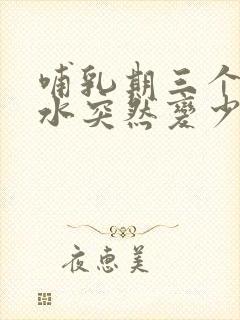 哺乳期三个
水突然变少
夜惠美